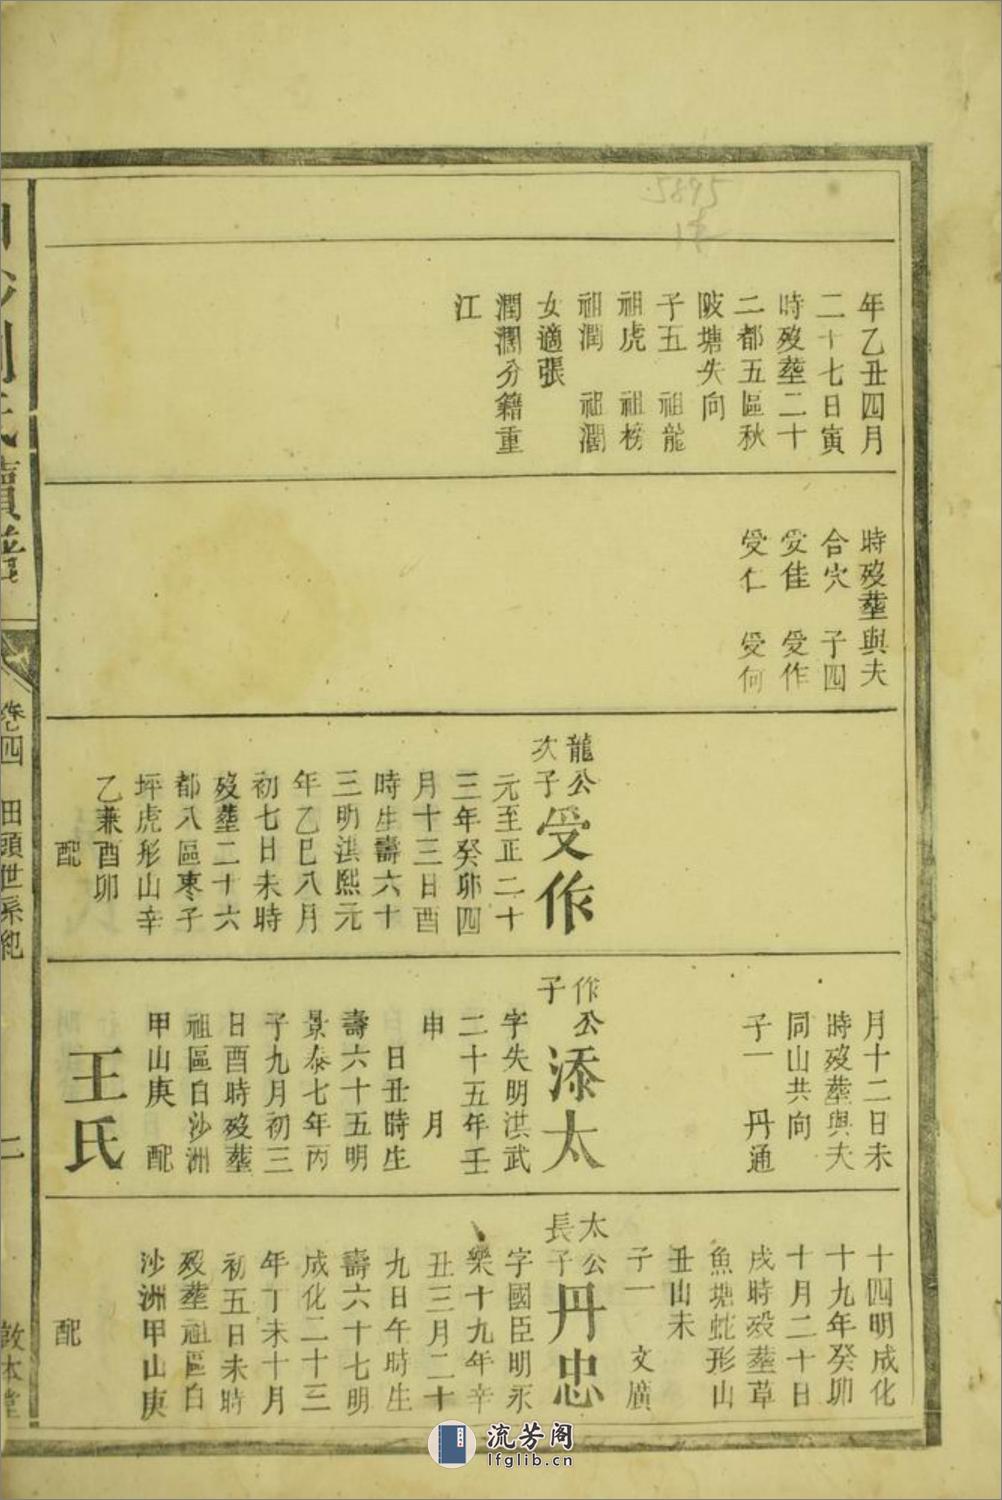 5895
年乙丑四月
二十七日寅
時歿塟二十
二都五區秋
陂塘失向
子五 祖龍
祖虎 祖榜
祖潤 祖濶
女適張
潤濶分籍重
江
時歿塟與夫
合穴 子四
受佳 受作
受仁 受何
龍公
次子
受作
元至正二十
三年癸卯四
月十三日酉
時生壽六十
三明洪熙元
年乙巳八月
初七日未時
歿塟二十六
都八區枣子
坪虎形山辛
乙兼酉卯
配
月十二日未
時歿塟與夫
同山共向
子一 丹通
作公
子
添太
字失明洪武
二十五年壬
申 月
日丑時生
壽六十五明
景泰七年丙
子九月初三
日酉時歿塟
祖區白沙洲
甲山庚 配
王氏
十四明成化
十九年癸卯
十月二十日
戌時歿塟草
魚塘蛇形山
丑山未
子一 文廣
太公
長子
丹忠
字國臣明永
樂十九年辛
丑三月二十
九日午時生
壽六十七明
成化二十三
年丁未十月
初五日未時
歿塟祖區白
沙洲甲山庚
配
氏續譜
卷四 田頭世系紀 二 敦本堂
流芳阁
lfglib.cn